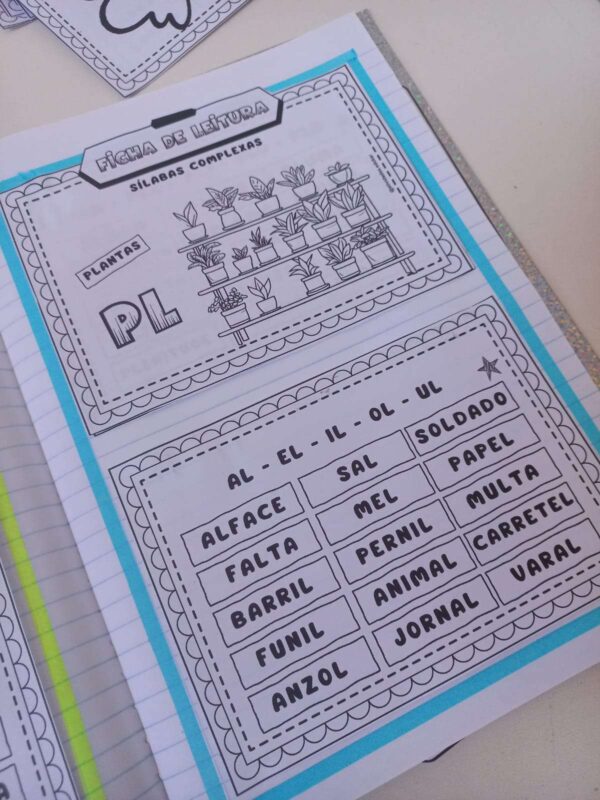 FICHA DE LEITURA
SÍLABAS COMPLEXAS
PLANTAS
PL
AL - EL - IL - OL - UL
ALFACE SAL SOLDADO
FALTA MEL PAPEL
BARRIL PERNIL MULTA
FUNIL ANIMAL CARRETEL
ANZOL JORNAL VARAL